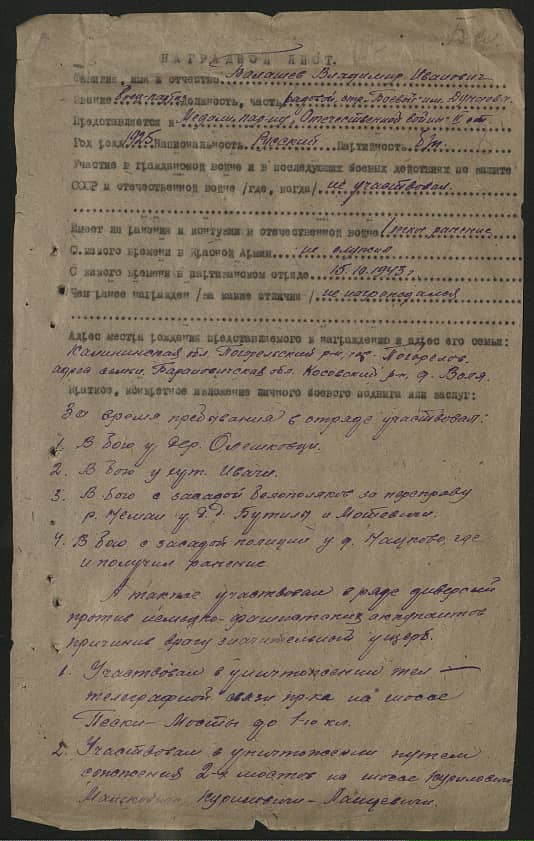 НАГРАДНОЙ ЛИСТ.
Фамилия, имя и отчество Балашев Владимир Иванович
Звание должность, часть рядовой, отр.
Представляется к Медали Отечественной войны II ст
Год рожд. 1925 Национальность Русский Партийность б/п
Участие в гражданской войне и в последующих боевых действиях по защите
СССР и отечественной войне /где, когда/ не участвовал
Имеет ли ранения и контузии в отечественной войне ранение
С какого времени в Красной Армии не служил
С какого времени в партизанском отряде 15.10.1943 г
Чем ранее награжден /за какие отличия/ не награждался
Адрес места рождения представляемого к награждению и адрес его семьи:
Калининская обл. Погорельский р-н,
адрес семьи. Барановичская обл. Косовский р-н д. Воля.
Краткое, конкретное изложение личного боевого подвига или заслуг:
За время пребывания в отряде участвовал:
1. В бою у дер. Олешковци.
2. В бою у хут. Ивачи.
3. В бою с засадой белополяков за переправу
р. Неман у д.д. Бутилы и
4. В бою с засадой полиции у д. где
и получил ранение
А также участвовал в ряде диверсий
против немецко-фашистских оккупантов
причинив врагу значительный ущерб.
1. Участвовал в уничтожении тел —
телеграфной связи пр-ка на шоссе
Пески - Мосты до 1-го кл.
2. Участвовал в уничтожении путем
сожжения 2-х мостов на шоссе Куриловичи
Куриловичи -